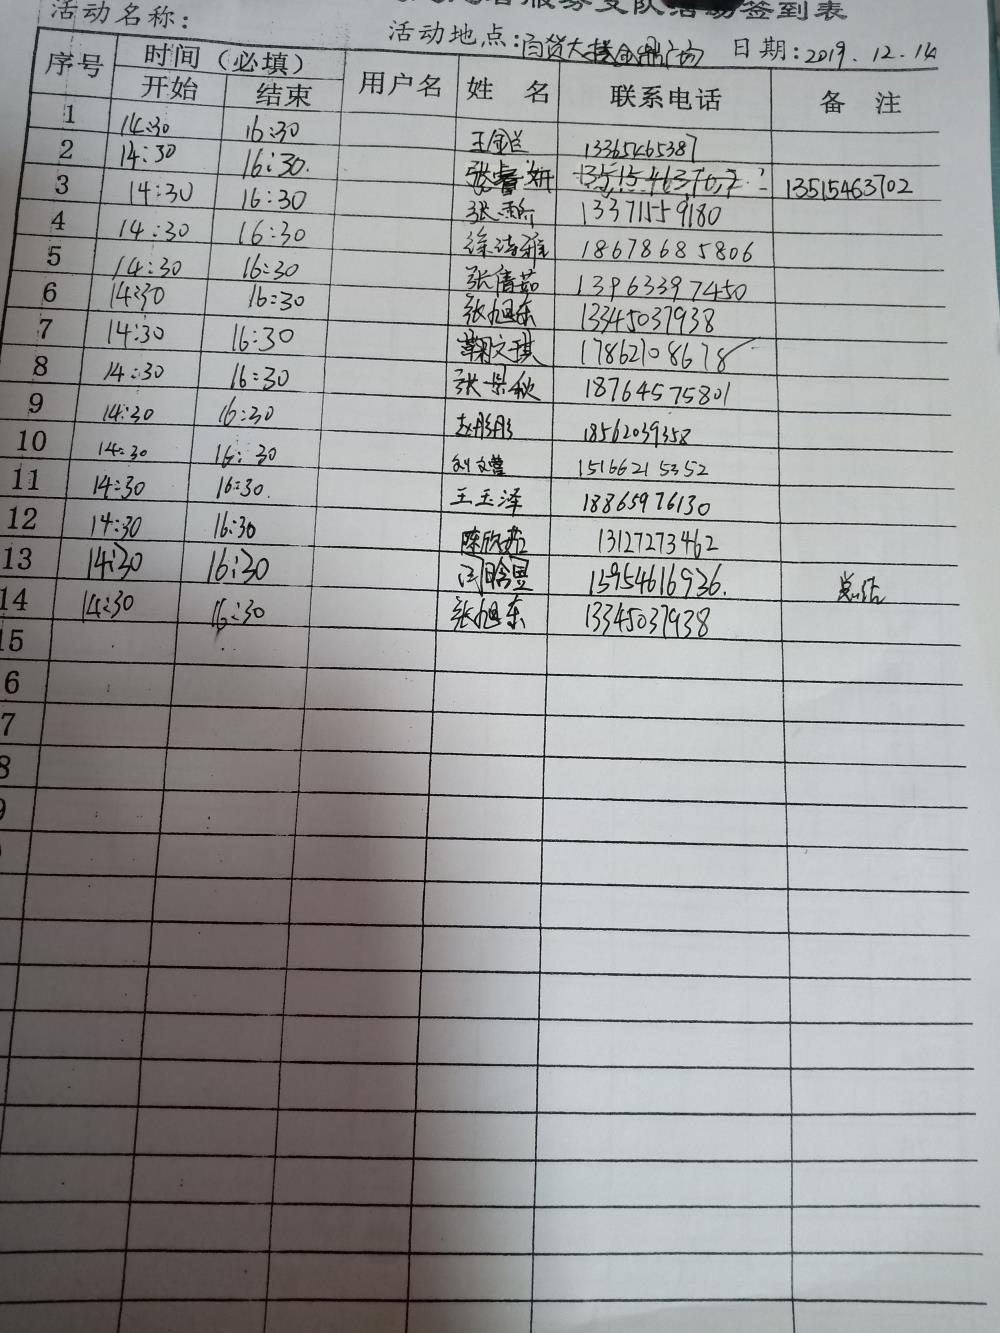 服务支队活动签到表
活动名称: 活动地点:百货大楼金鼎广场 日期:2019.12.14
序号 时间(必填) 用户名 姓 名 联系电话 备 注
开始 结束
1 14:30 16:30 13365465387
2 14:30 16:30. 张睿妍 13515463702 13515463702
3 14:30 16:30 张 13371559180
4 14:30 16:30 徐诗雅 18678685806
5 14:30 16:30 张倩茹 13963397450
6 14:30 16:30 张旭东 13345037938
7 14:30 16:30 鞠文琪 17862108678
8 14:30 16:30 张景秋 18764575801
9 14:30 16:30 赵彤彤 18562039358
10 14:30 16:30 刘文萱 15166215352
11 14:30 16:30. 王玉泽 18865976130
12 14:30 16:30 陈欣 13127273462
13 14:30 16:30 闫晗昱 15954616936. 总结
14 14:30 16:30 张旭东 13345037938
15
6
7
8
9